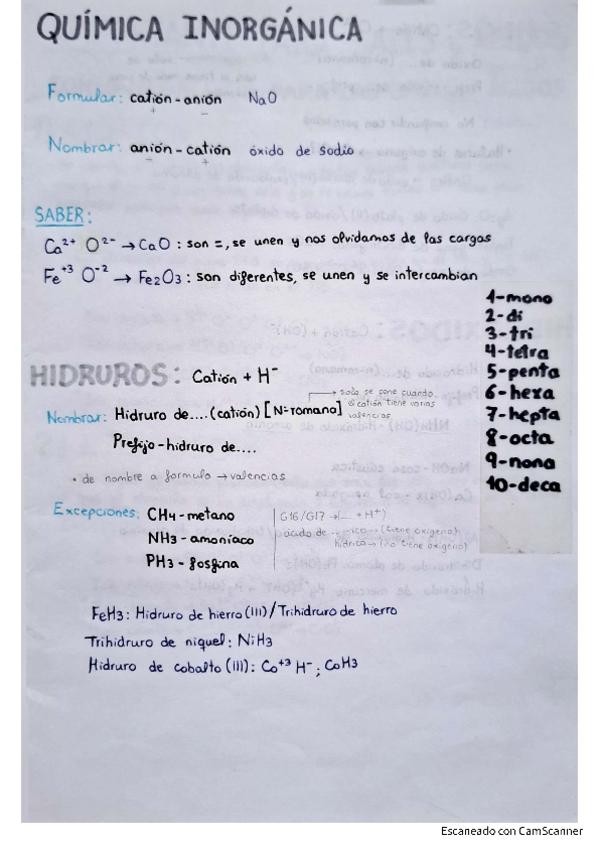 QUÍMICA INORGÁNICA
Formular: catión - anión NaO
+ −
Nombrar: anión - catión óxido de sodio
− +
SABER:
Ca²⁺ O²⁻ → CaO : son =, se unen y nos olvidamos de las cargas
Fe⁺³ O⁻² → Fe₂O₃ : son diferentes, se unen y se intercambian
1-mono
2-di
3-tri
4-tetra
5-penta
6-hexa
7-hepta
8-octa
9-nona
10-deca
HIDRUROS: Catión + H⁻
→ solo se pone cuando
el catión tiene varias
valencias
Nombrar: Hidruro de....(catión) [Nº romano]
Prefijo - hidruro de....
• de nombre a formula → valencias
Excepciones: CH₄ - metano
NH₃ - amoníaco
PH₃ - fosgina
G16/G17 → (... + H⁺)
ácido de ...ico → (tiene oxígeno)
hídrico → (no tiene oxígeno)
FeH₃ : Hidruro de hierro (III) / Trihidruro de hierro
Trihidruro de niquel : NiH₃
Hidruro de cobalto (III) : Co⁺³ H⁻ ; CoH₃
Escaneado con CamScanner